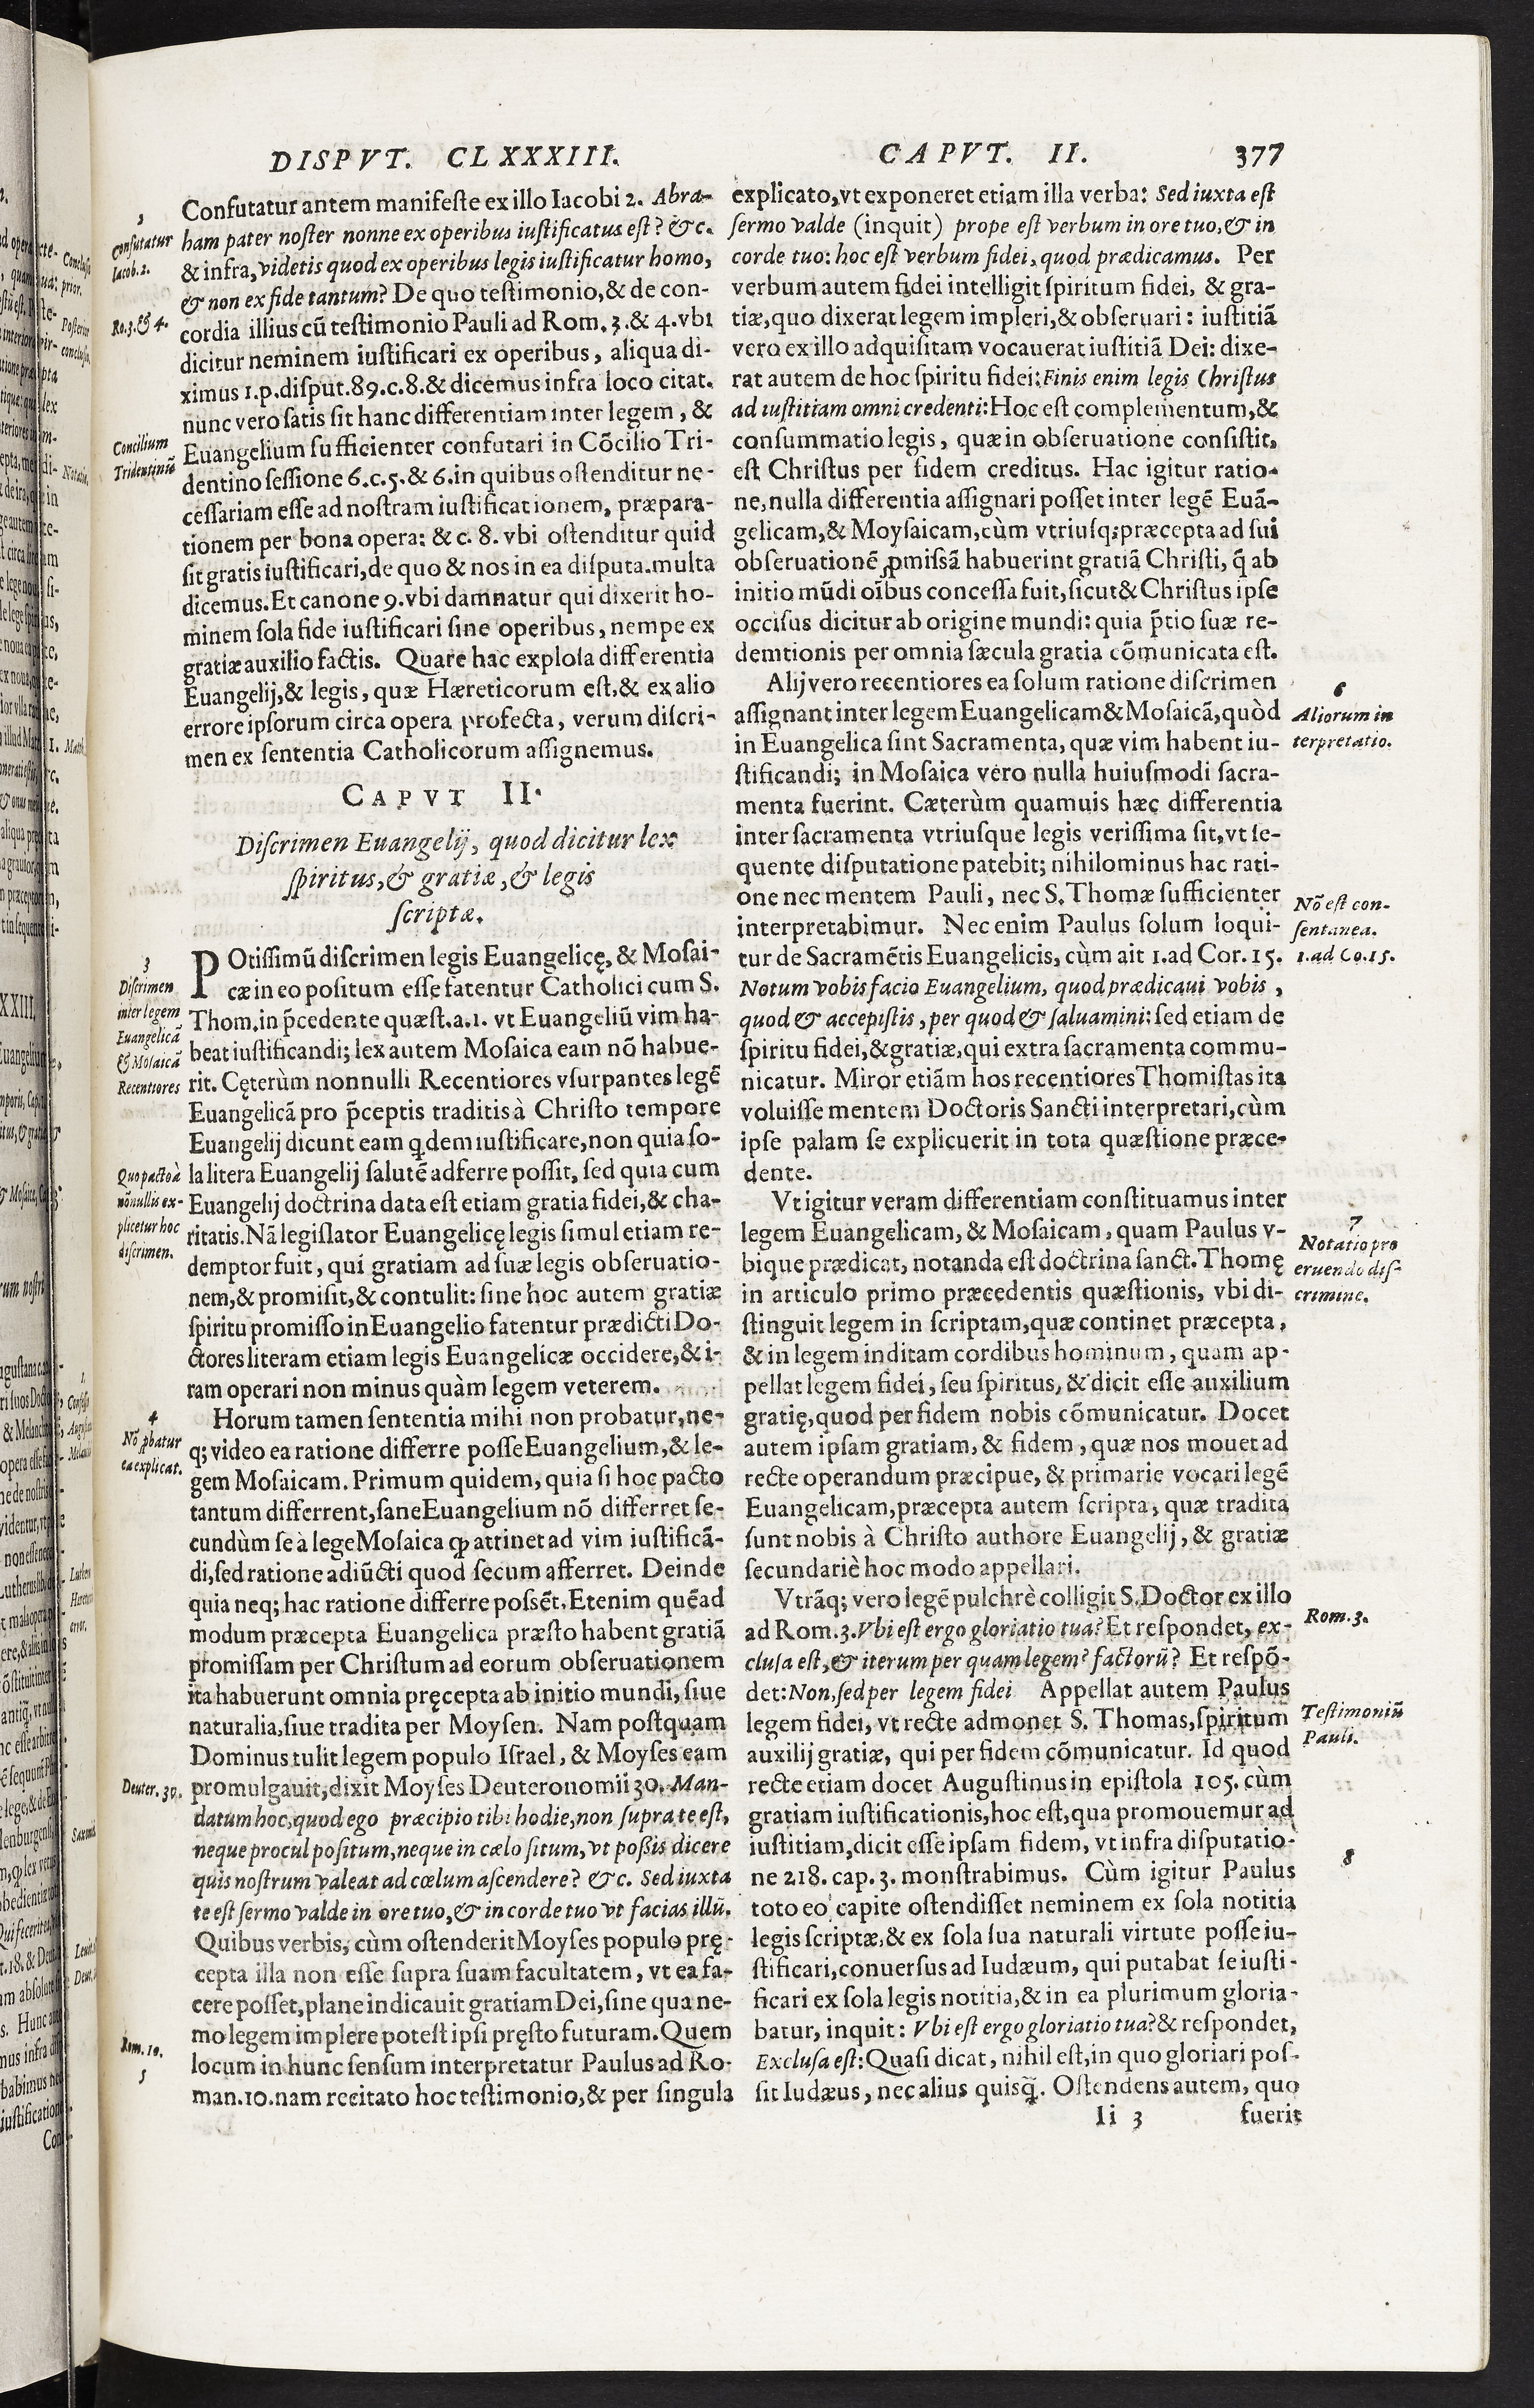 DISPVT. CLXXXIII. CAPVT. II. 377
Confutatur antem manifeſte ex illo Iacobi 2. Abra-
ham pater noſter nonne ex operibus iuſtificatus eſt? & c.
& infra, videtis quod ex operibus legis iuſtificatur homo,
& non ex fide tantum? De quo teſtimonio, & de con-
cordia illius cũ teſtimonio Pauli ad Rom. 3. & 4. vbi
dicitur neminem iuſtificari ex operibus, aliqua di-
ximus 1. p. diſput. 89. c. 8. & dicemus infra loco citat.
nunc vero ſatis ſit hanc differentiam inter legem, &
Euangelium ſufficienter confutari in Cõcilio Tri-
dentino ſeſſione 6. c. 5. & 6. in quibus oſtenditur ne-
ceſſariam eſſe ad noſtram iuſtificationem, præpara-
tionem per bona opera: & c. 8. vbi oſtenditur quid
ſit gratis iuſtificari, de quo & nos in ea diſputa. multa
dicemus. Et canone 9. vbi damnatur qui dixerit ho-
minem ſola fide iuſtificari ſine operibus, nempe ex
gratiæ auxilio factis. Quare hac exploſa differentia
Euangelij, & legis, quæ Hæreticorum eſt, & ex alio
errore ipſorum circa opera profecta, verum diſcri-
men ex ſententia Catholicorum aſſignemus.
CAPVT II.
Diſcrimen Euangelij, quod dicitur lex
ſpiritus, & gratiæ, & legis
ſcriptæ.
POtiſſimũ diſcrimen legis Euangelicę, & Moſai-
cæ in eo poſitum eſſe fatentur Catholici cum S.
Thom. in p̃cedente quæſt. a. 1. vt Euangeliũ vim ha-
beat iuſtificandi; lex autem Moſaica eam nõ habue-
rit. Cęterùm nonnulli Recentiores vſurpantes legẽ
Euangelicã pro p̃ceptis traditis à Chriſto tempore
Euangelij dicunt eam q̃dem iuſtificare, non quia ſo-
la litera Euangelij ſalutẽ adferre poſſit, ſed quia cum
Euangelij doctrina data eſt etiam gratia fidei, & cha-
ritatis. Nã legiſlator Euangelicę legis ſimul etiam re-
demptor fuit, qui gratiam ad ſuæ legis obſeruatio-
nem, & promiſit, & contulit: ſine hoc autem gratiæ
ſpiritu promiſſo in Euangelio fatentur prædicti Do-
ctores literam etiam legis Euangelicæ occidere, & i-
ram operari non minus quàm legem veterem.
Horum tamen ſententia mihi non probatur, ne-
q; video ea ratione differre poſſe Euangelium, & le-
gem Moſaicam. Primum quidem, quia ſi hoc pacto
tantum differrent, ſane Euangelium nõ differret ſe-
cundùm ſe à lege Moſaica ꝙ attinet ad vim iuſtificã-
di, ſed ratione adiũcti quod ſecum afferret. Deinde
quia neq; hac ratione differre poſſẽt. Etenim quẽad
modum præcepta Euangelica præſto habent gratiã
promiſſam per Chriſtum ad eorum obſeruationem
ita habuerunt omnia pręcepta ab initio mundi, ſiue
naturalia, ſiue tradita per Moyſen. Nam poſtquam
Dominus tulit legem populo Iſrael, & Moyſes eam
promulgauit, dixit Moyſes Deuteronomii 30. Man-
datum hoc, quod ego præcipio tibi hodie, non ſupra te eſt,
neque procul poſitum, neque in cælo ſitum, vt poßis dicere
quis noſtrum valeat ad cœlum aſcendere? & c. Sed iuxta
te eſt ſermo valde in ore tuo, & in corde tuo vt facias illũ.
Quibus verbis, cùm oſtenderit Moyſes populo prę-
cepta illa non eſſe ſupra ſuam facultatem, vt ea fa-
cere poſſet, plane indicauit gratiam Dei, ſine qua ne-
mo legem implere poteſt ipſi pręſto futuram. Quem
locum in hunc ſenſum interpretatur Paulus ad Ro-
man. 10. nam recitato hoc teſtimonio, & per ſingula
1
Confutatur
Iacob. 2.
Ro. 3. & 4.
Concilium
Tridentinũ
3
Diſcrimen
inter legem
Euangelicã
& Moſaicã
Recentiores
Quo pacto à
nõnullis ex-
plicetur hoc
diſcrimen.
4
Nõ ꝓbatur
ea explicat.
Deuter. 30.
Rom. 10.
5
explicato, vt exponeret etiam illa verba: Sed iuxta eſt
ſermo valde (inquit) prope eſt verbum in ore tuo, & in
corde tuo: hoc eſt verbum fidei, quod prædicamus. Per
verbum autem fidei intelligit ſpiritum fidei, & gra-
tiæ, quo dixerat legem impleri, & obſeruari: iuſtitiã
vero ex illo adquiſitam vocauerat iuſtitiã Dei: dixe-
rat autem de hoc ſpiritu fidei: Finis enim legis Chriſtus
ad iuſtitiam omni credenti: Hoc eſt complementum, &
conſummatio legis, quæ in obſeruatione conſiſtit,
eſt Chriſtus per fidem creditus. Hac igitur ratio-
ne, nulla differentia aſſignari poſſet inter legẽ Euã-
gelicam, & Moyſaicam, cùm vtriuſq; præcepta ad ſui
obſeruationẽ ꝓmiſsã habuerint gratiã Chriſti, q̃ ab
initio mũdi oĩbus conceſſa fuit, ſicut & Chriſtus ipſe
occiſus dicitur ab origine mundi: quia p̃tio ſuæ re-
demtionis per omnia ſæcula gratia cõmunicata eſt.
Alij vero recentiores ea ſolum ratione diſcrimen
aſſignant inter legem Euangelicam & Moſaicã, quòd
in Euangelica ſint Sacramenta, quæ vim habent iu-
ſtificandi; in Moſaica vero nulla huiuſmodi ſacra-
menta fuerint. Cæterùm quamuis hæc differentia
inter ſacramenta vtriuſque legis veriſſima ſit, vt ſe-
quente diſputatione patebit; nihilominus hac rati-
one nec mentem Pauli, nec S. Thomæ ſufficienter
interpretabimur. Nec enim Paulus ſolum loqui-
tur de Sacramẽtis Euangelicis, cùm ait 1. ad Cor. 15.
Notum vobis facio Euangelium, quod prædicaui vobis,
quod & accepiſtis, per quod & ſaluamini: ſed etiam de
ſpiritu fidei, & gratiæ, qui extra ſacramenta commu-
nicatur. Miror etiãm hos recentiores Thomiſtas ita
voluiſſe mentem Doctoris Sancti interpretari, cùm
ipſe palam ſe explicuerit in tota quæſtione præce-
dente.
Vt igitur veram differentiam conſtituamus inter
legem Euangelicam, & Moſaicam, quam Paulus v-
bique prædicat, notanda eſt doctrina ſanct. Thomę
in articulo primo præcedentis quæſtionis, vbi di-
ſtinguit legem in ſcriptam, quæ continet præcepta,
& in legem inditam cordibus hominum, quam ap-
pellat legem fidei, ſeu ſpiritus, & dicit eſſe auxilium
gratię, quod per fidem nobis cõmunicatur. Docet
autem ipſam gratiam, & fidem, quæ nos mouet ad
recte operandum præcipue, & primarie vocari legẽ
Euangelicam, præcepta autem ſcripta, quæ tradita
ſunt nobis à Chriſto authore Euangelij, & gratiæ
ſecundariè hoc modo appellari.
Vtrãq; vero legẽ pulchrè colligit S. Doctor ex illo
ad Rom. 3. Vbi eſt ergo gloriatio tua? Et reſpondet, ex-
cluſa eſt, & iterum per quam legem? factorũ? Et reſpõ-
det: Non, ſed per legem fidei Appellat autem Paulus
legem fidei, vt recte admonet S. Thomas, ſpiritum
auxilij gratiæ, qui per fidem cõmunicatur. Id quod
recte etiam docet Auguſtinus in epiſtola 105. cùm
gratiam iuſtificationis, hoc eſt, qua promouemur ad
iuſtitiam, dicit eſſe ipſam fidem, vt infra diſputatio-
ne 218. cap. 3. monſtrabimus. Cùm igitur Paulus
toto eo capite oſtendiſſet neminem ex ſola notitia
legis ſcriptæ, & ex ſola ſua naturali virtute poſſe iu-
ſtificari, conuerſus ad Iudæum, qui putabat ſe iuſti-
ficari ex ſola legis notitia, & in ea plurimum gloria-
batur, inquit: Vbi eſt ergo gloriatio tua? & reſpondet,
Excluſa eſt: Quaſi dicat, nihil eſt, in quo gloriari poſ-
ſit Iudæus, nec alius quisq̃. Oſtendens autem, quo
Ii 3 fuerit
6
Aliorum in
terpretatio.
Nõ eſt con-
ſentanea.
1. ad Co. 15.
7
Notatio pro
eruendo diſ-
crimine.
Rom. 3.
Teſtimoniũ
Pauli.
8